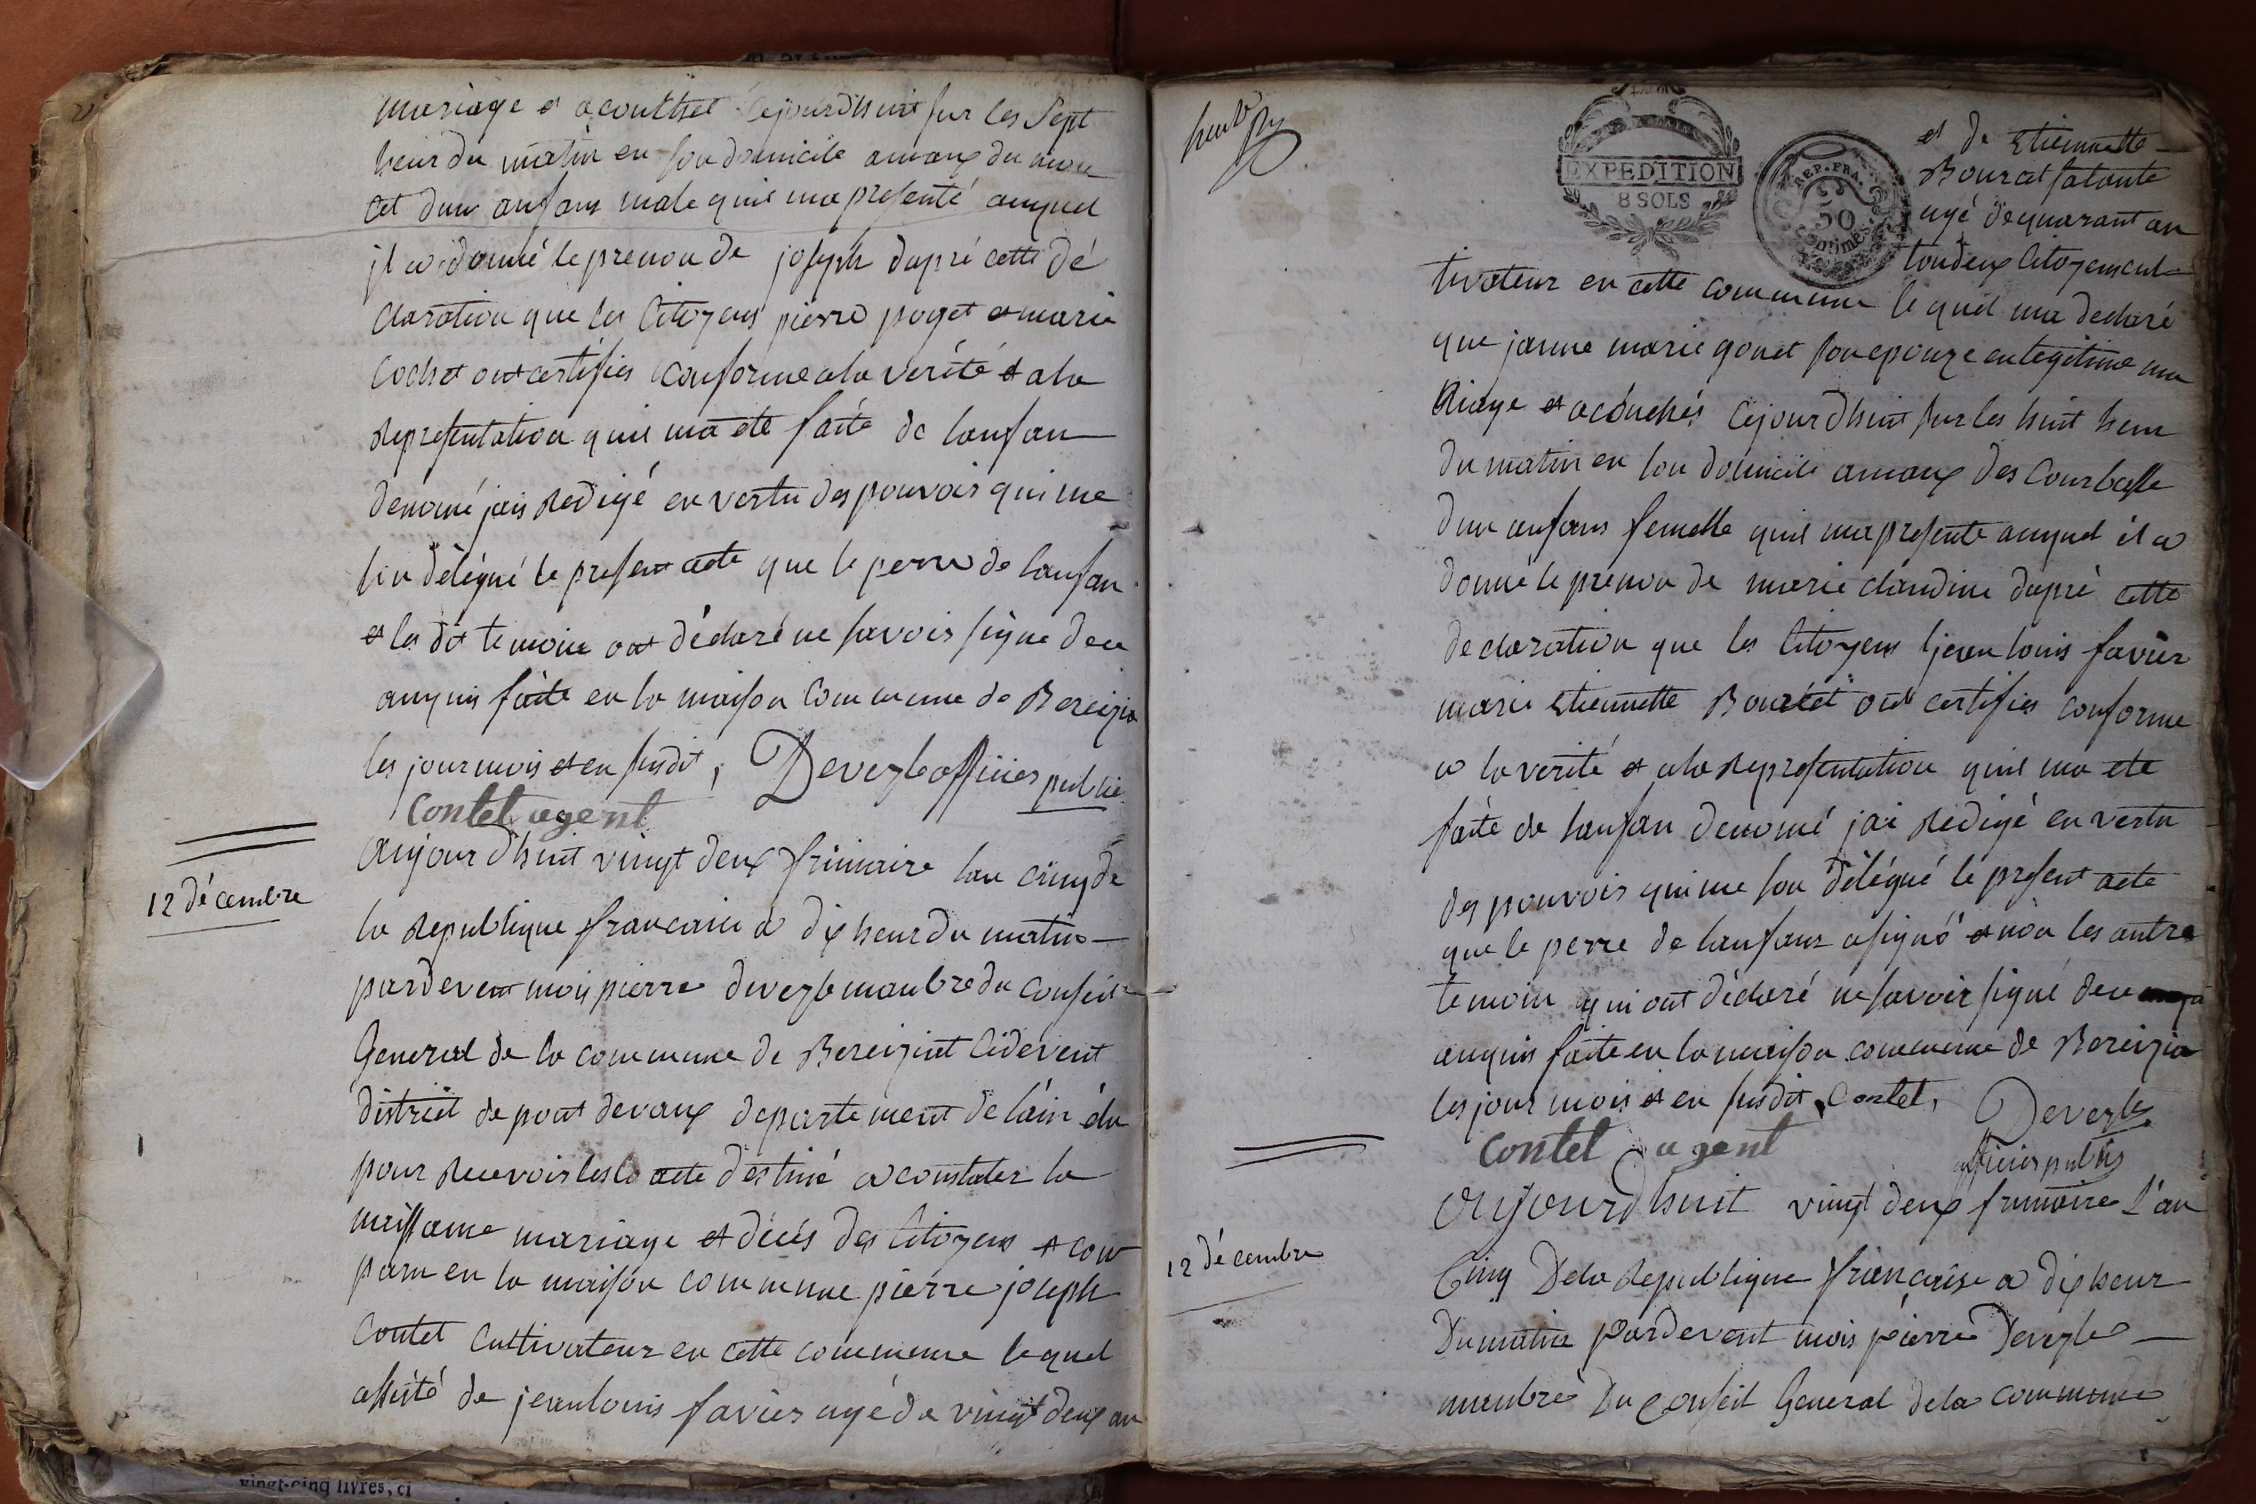 mariage et acouthet cejourdhuit sur les sept
heur du matin en son domicile amaux du mon
cet dun anfans male quil ma presenté auquel
il a donné le prenon de joseph dapré cette dé
claration que les Citoyens pierre poget et marie
Cochet ont certifies conforme ala verité et ala
Representation quil ma eté faite de lanfan
denomé jais Redigé en vertu des pouvois qui me
son délégué le present acte que le perre de lanfan
et les dit temoin ont déclaré ne savois signe de ce
anquis faite en la maison Commune de Bereizia
les jour mois et en susdit, Deveyle officier public
Contet agent
12 décembre
aujourdhuit vingt deux frimaire lan cinq de
la Republique francaise a dix heur du matin
pardevent mois pierre deveyle manbre du Conseil
General de la commune de Bereiziat Cidevent
district de pont devaux departement de láin élu
pour Recevois les acte destiné a constater la
naissance mariage et décés des Citoyens et con
paru en la maison commune pierre joseph
Contet Cultivateur en cette commune lequel
assisté de jeanlouis favier agé de vingt deux an
EXPEDITION
8 SOLS
REP. FRA.
50
centimes
et de Etiennette
Bourcet tatante
agé dequarant an
toudeux Citoyencul
tivateur en cette commune lequel ma declaré
que janne marie gonet son epouze en legitime ma
Riage et acouchés cejourdhuit sur les huit heur
du matin en son domicile amaux des Courbasse
dun anfans femelle quil ma presente auquel il a
donné le prénon de marie claudine dapré cette
declaration que les Citoyens jean louis favier
marie Etiennette Bourcet ont certifies conforme
a la verité et ala Representation quil ma eté
faite de lanfan denomé jai Redigé en vertu
des pouvois qui me son délégué le present acte
que le perre de lanfans asigné et non les autre
temoin qui ont déclaré ne savoir signé de ce
anquis faite en la maison commune de Bereizia
les jour mois et en susdit, Contet, Deveyle
Contet agent officier public
12 décembre
aujourdhuit vingt deux frimaire l'an
Cinq Dela Republique francaise a dix heur
Dumatin Pardevent mois pierre Deveyle
manbre Du Conseil General dela commune